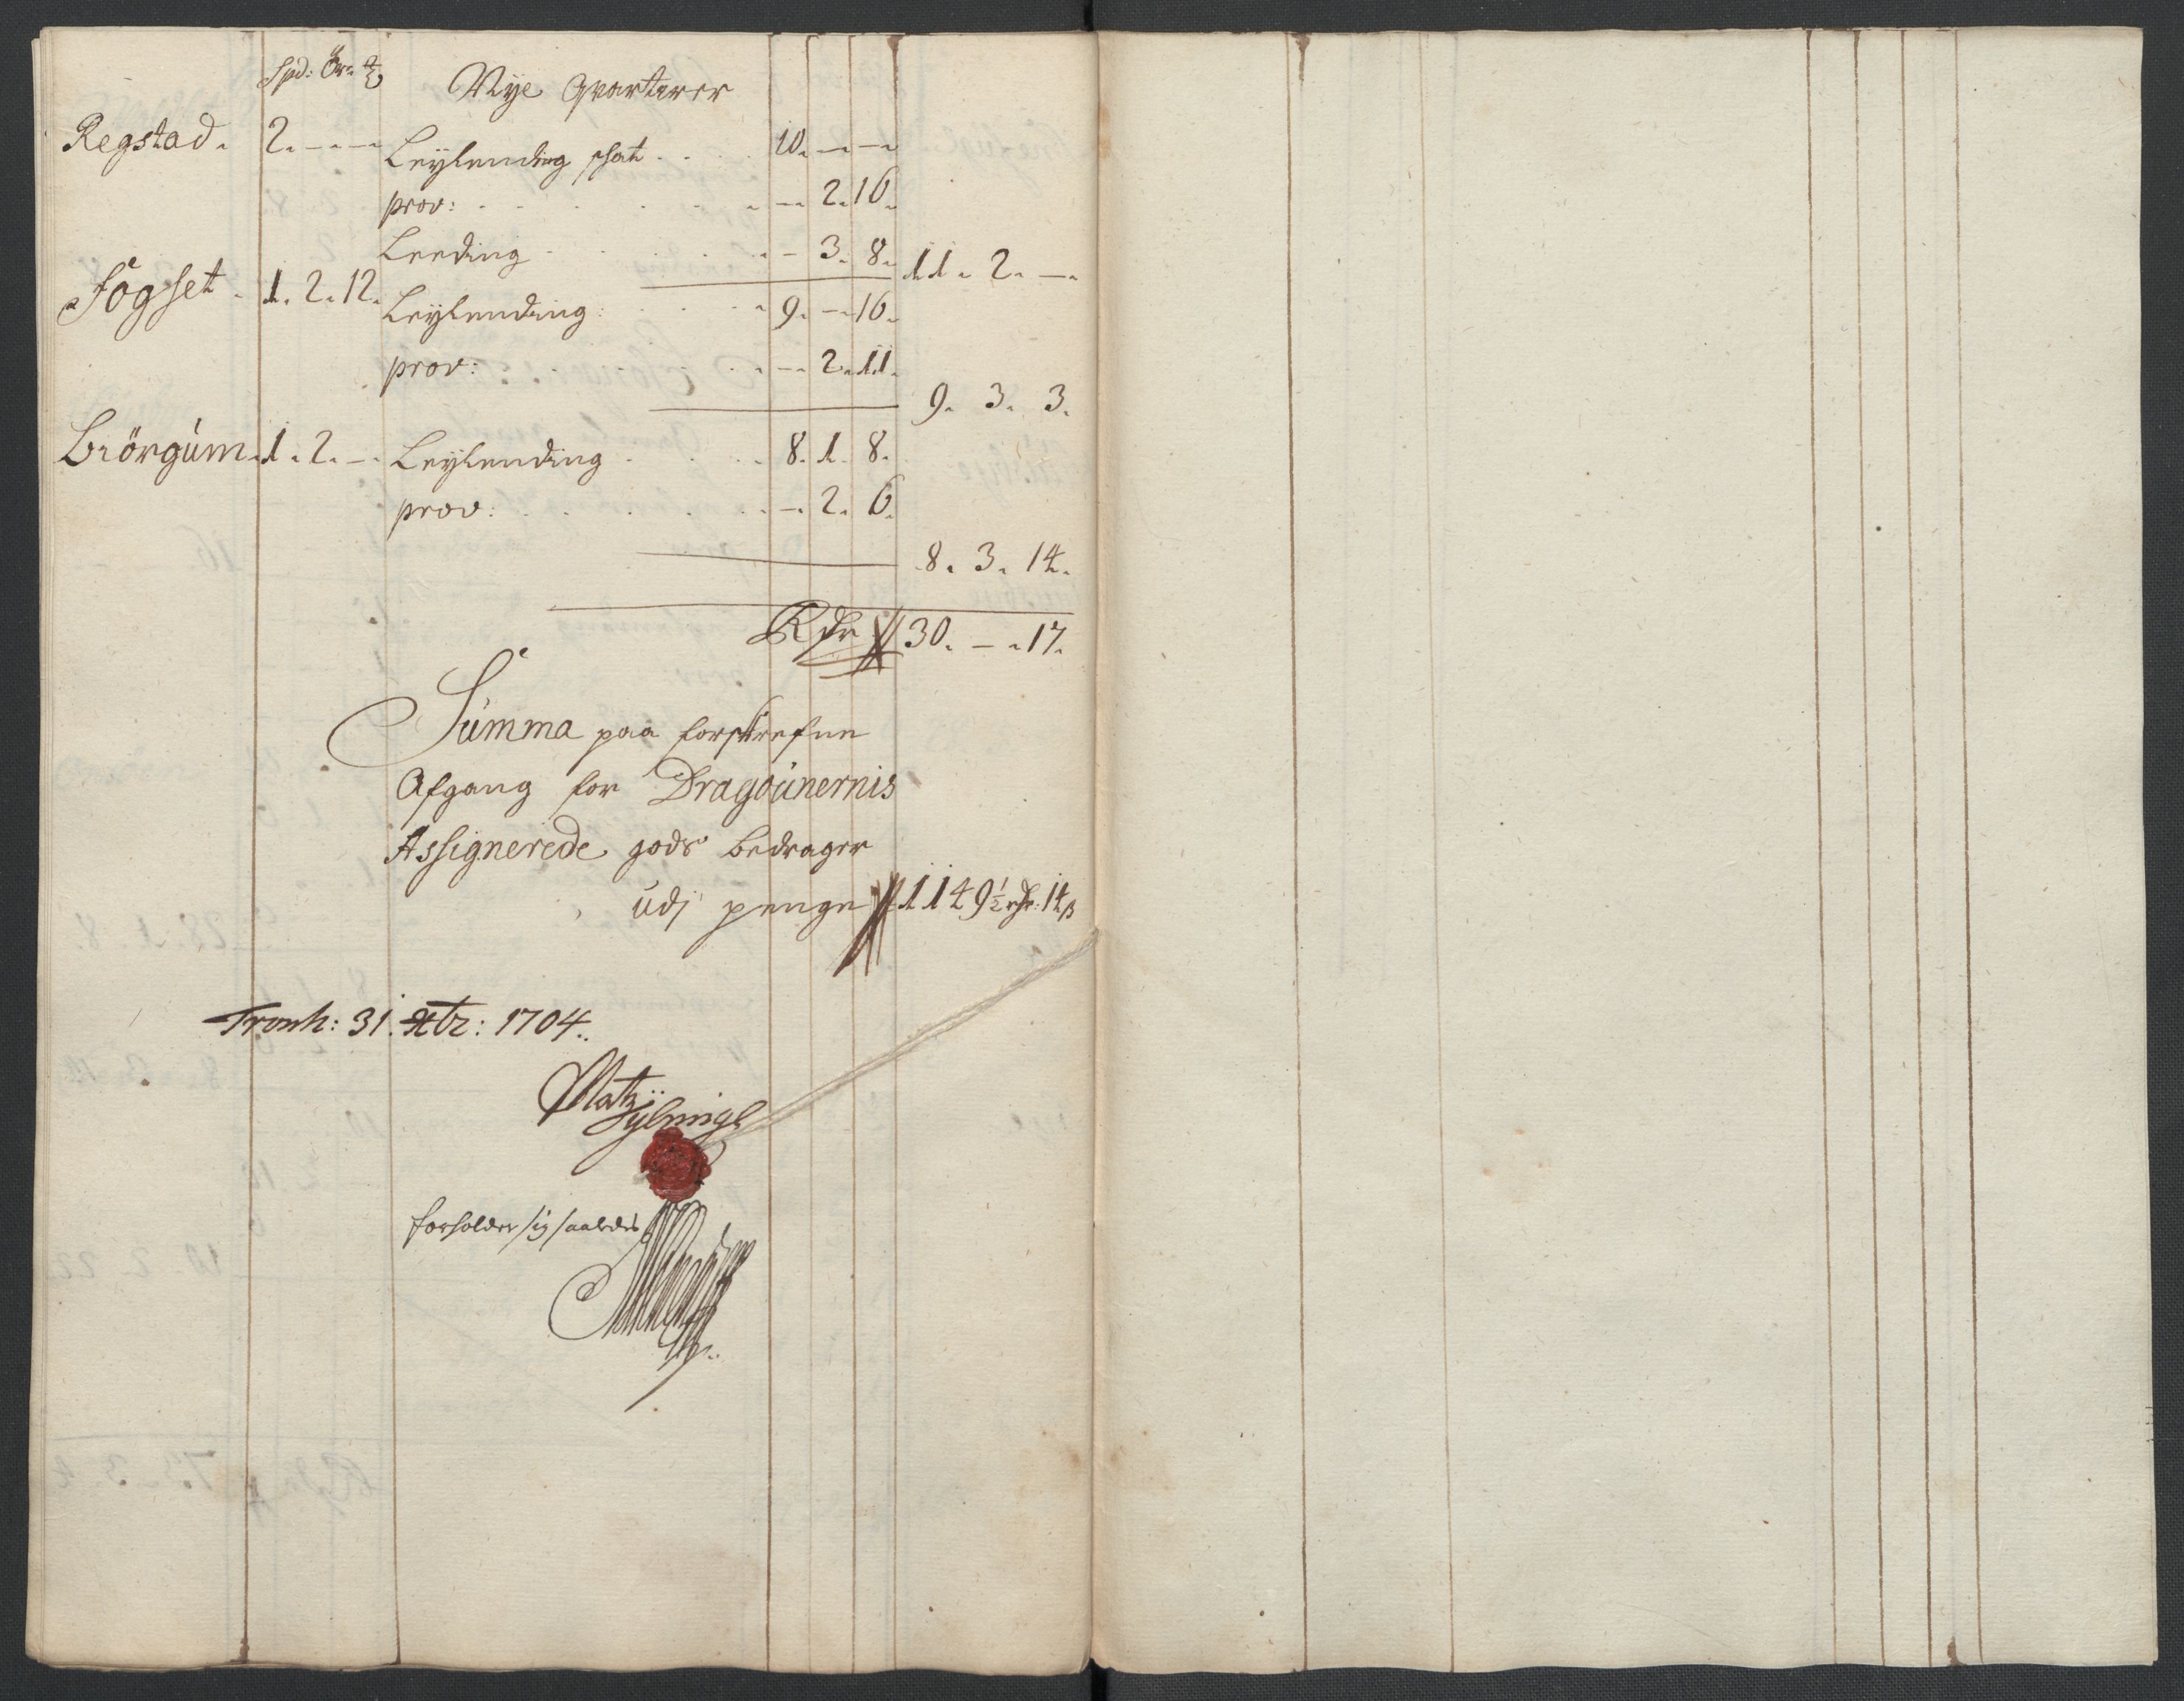 Spd: Öre
Nye Qvarterer
Regstad. 2. — . — Leÿlending schat . . . . 10. — . —
prov: . . . . . . — . 2. 16.
Leeding . . . . . . — 3. 8. 11. 2. —.
Fogset . 1. 2. 12. Leÿlending: . . . . 9. — . 16.
prov: . . . . — . 2. 11.
9. 3. 3.
Biörgüm . 1. 2. — . Leÿlending . . . . 8. 1. 8.
prov: . . . . . . — . 2. 6.
8. 3. 14.
Rdr 30. — . 17.
Summa paa forskrefne
Afgang for Dragounernis
Assignerede gods bedrager
udj penge 1149½ rdr: 14 ß
Tronh: 31. Xbr: 1704.
forholder sig saaledes